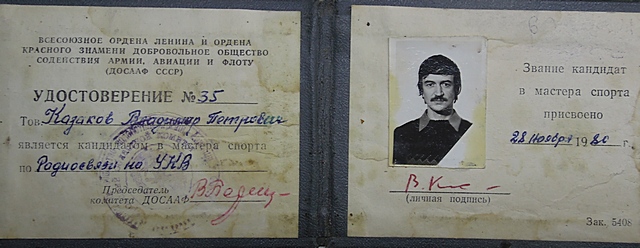 ВСЕСОЮЗНОЕ ОРДЕНА ЛЕНИНА И ОРДЕНА
КРАСНОГО ЗНАМЕНИ ДОБРОВОЛЬНОЕ ОБЩЕСТВО
СОДЕЙСТВИЯ АРМИИ, АВИАЦИИ И ФЛОТУ
(ДОСААФ СССР)
УДОСТОВЕРЕНИЕ № 35
Тов. Казаков Владимир Петрович
является кандидатом в мастера спорта
по Радиосвязи на УКВ
Председатель
комитета ДОСААФ
Звание кандидат
в мастера спорта
присвоено
28 Ноября 1980 г.
(личная подпись)
Зак. 5408